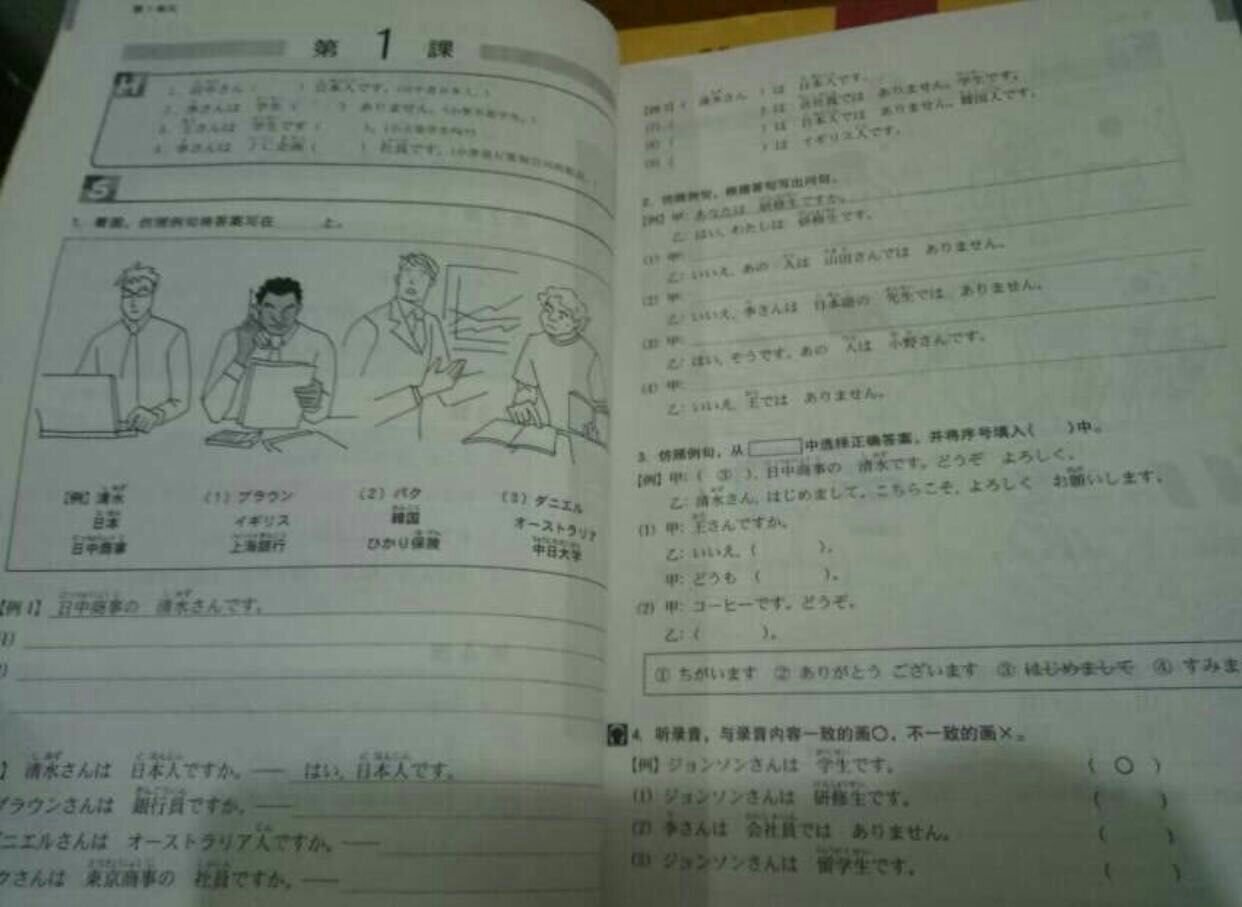 第 1 課
M
1. 田中さん（　　）日本人です。
2. 李さんは 学生（　　）ありません。
3. 王さんは 学生です（　　）。
4. 李さんは （　　）社員です。
S
1. 看图，仿照例句将答案写在____上。
【例】清水
日本
日中商事
（1）ブラウン
イギリス
上海銀行
（2）パク
韓国
ひかり保険
（3）ダニエル
オーストラリア
中日大学
【例 1】 日中商事の 清水さんです。
清水さんは 日本人ですか。—— はい，日本人です。
ブラウンさんは 銀行員ですか。——
ダニエルさんは オーストラリア人ですか。——
クさんは 東京商事の 社員ですか。——
清水さん ）は 日本人です。
）は 会社員では ありません。学生です。
）は 日本人では ありません。韓国人です。
）は イギリス人です。
2. 仿照例句，根据答句写出问句。
【例】甲: あなたは 研修生ですか。
乙: はい，わたしは 研修生です。
(1) 甲:
乙: いいえ，あの 人は 山田さんでは ありません。
(2) 甲:
乙: いいえ，李さんは 日本語の 先生では ありません。
(3) 甲:
乙: はい，そうです。あの 人は 小野さんです。
(4) 甲:
乙: いいえ，王では ありません。
3. 仿照例句，从 中选择正确答案，并将序号填入（　　）中。
【例】甲:（ ③ ），日中商事の 清水です。どうぞ よろしく。
乙: 清水さん，はじめまして。こちらこそ，よろしく お願いします。
(1) 甲: 王さんですか。
乙: いいえ，（　　）。
甲: どうも （　　）。
(2) 甲: コーヒーです。どうぞ。
乙:（　　）。
① ちがいます ② ありがとう ございます ③ はじめまして ④ すみま
4. 听录音，与录音内容一致的画○，不一致的画×。
【例】ジョンソンさんは 学生です。 （ ○ ）
(1) ジョンソンさんは 研修生です。 （　　）
(2) 李さんは 会社員では ありません。 （　　）
(3) ジョンソンさんは 留学生です。 （　　）